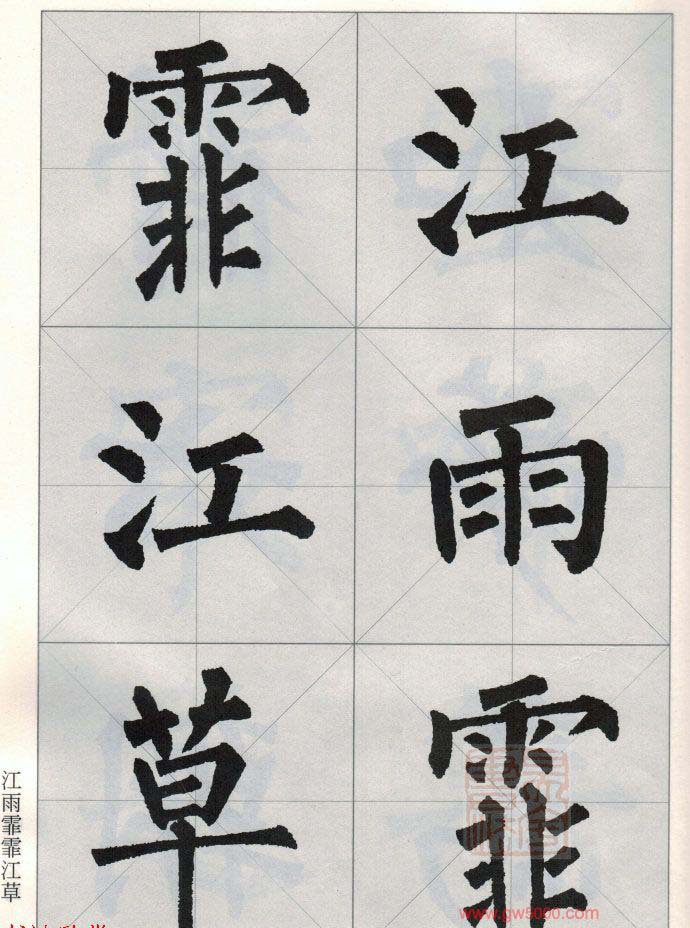 江雨霏
霏江草
江雨霏霏江草
www.gw5000.com